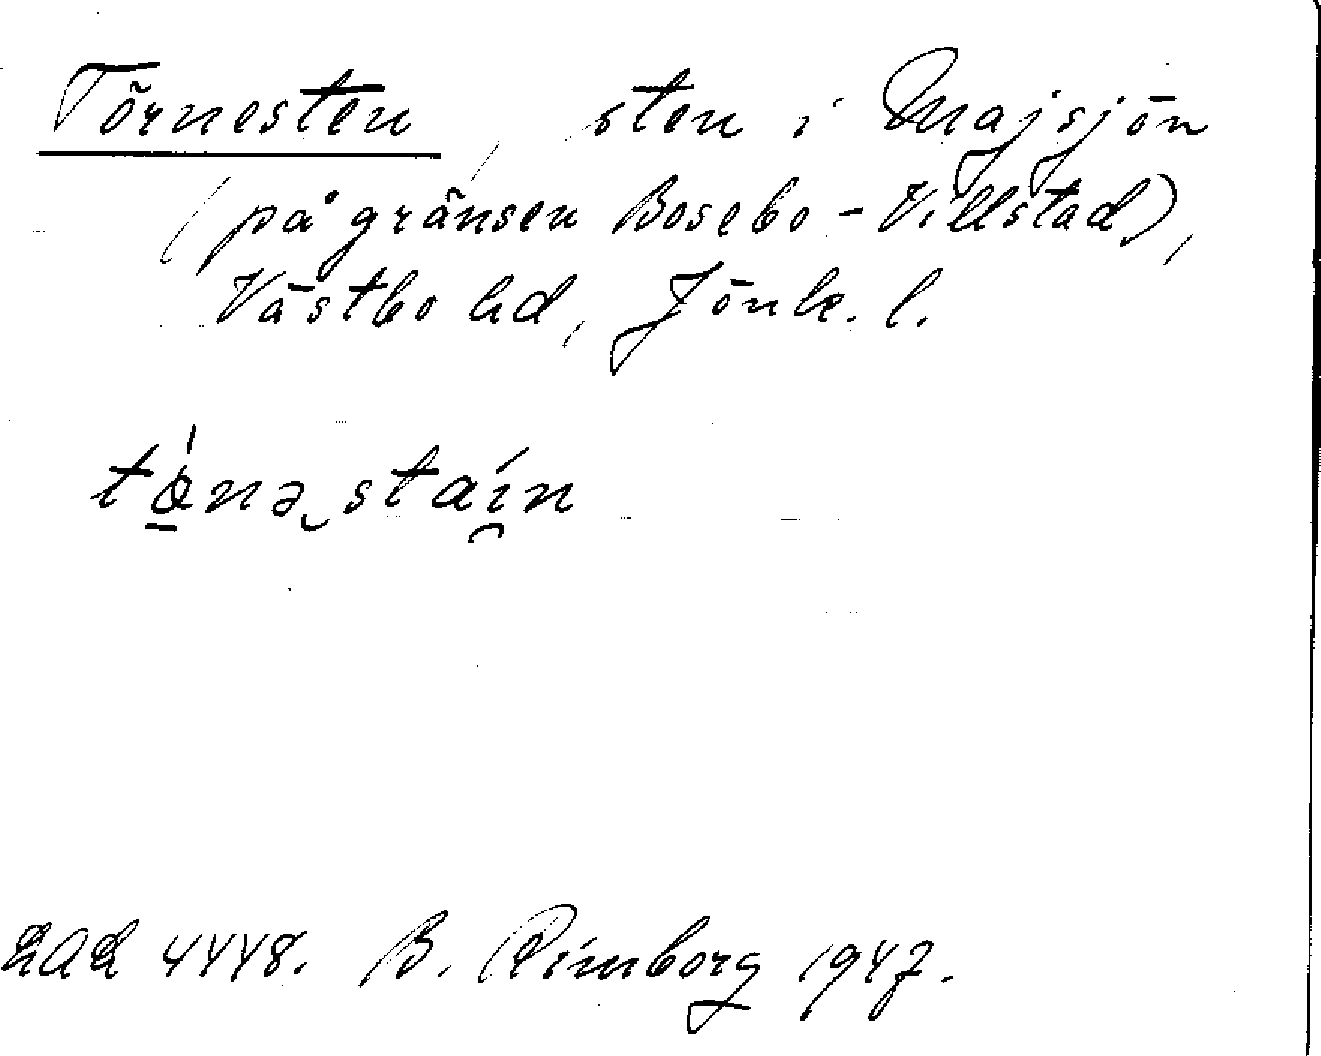 Törnesten, sten i Majsjön
(på gränsen Bosebo-Villstad),
Västbo hd, Jönk. l.
tǿ̱nə̮staín̯
LAL 4448. B. Rimborg 1947.